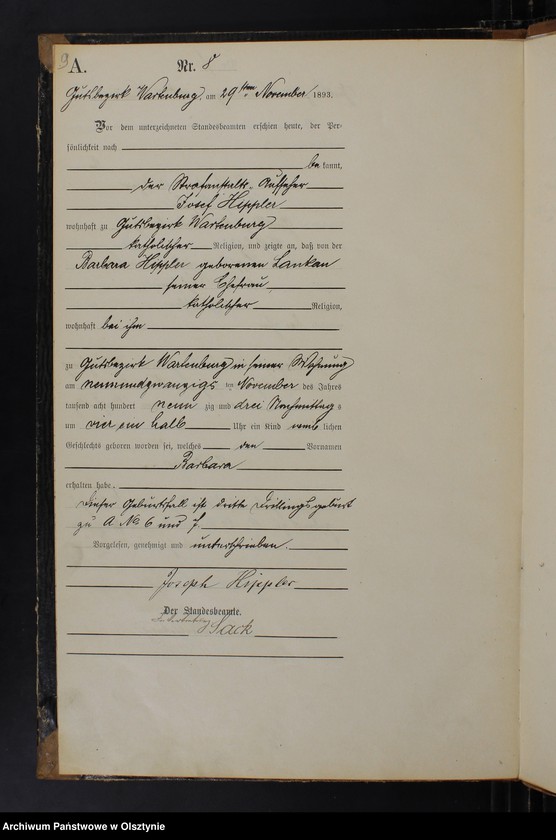 9
A.
Nr. 8
Gutsbezirk Wartenburg, am 29ten November 1893.
Vor dem unterzeichneten Standesbeamten erschien heute, der Per-
sönlichkeit nach
bekannt,
der Strafanstalts-Aufseher
Josef Hippler
wohnhaft zu Gutsbezirk Wartenburg
katholischer Religion, und zeigte an, daß von der
Barbara Hippler geborenen Lankau
seiner Ehefrau
katholischer Religion,
wohnhaft bei ihm
zu Gutsbezirk Wartenburg in seiner Wohnung
am neunundzwanzigsten November des Jahres
tausend acht hundert neunzig und drei Nachmittags
um vier ein halb Uhr ein Kind weiblichen
Geschlechts geboren worden sei, welches den Vornamen
Barbara
erhalten habe.
Dieser Geburtsfall ist dritte Drillingsgeburt
zu A No 6 und 7.
Vorgelesen, genehmigt und unterschrieben.
Joseph Hippler
Der Standesbeamte.
Sack
Archiwum Państwowe w Olsztynie